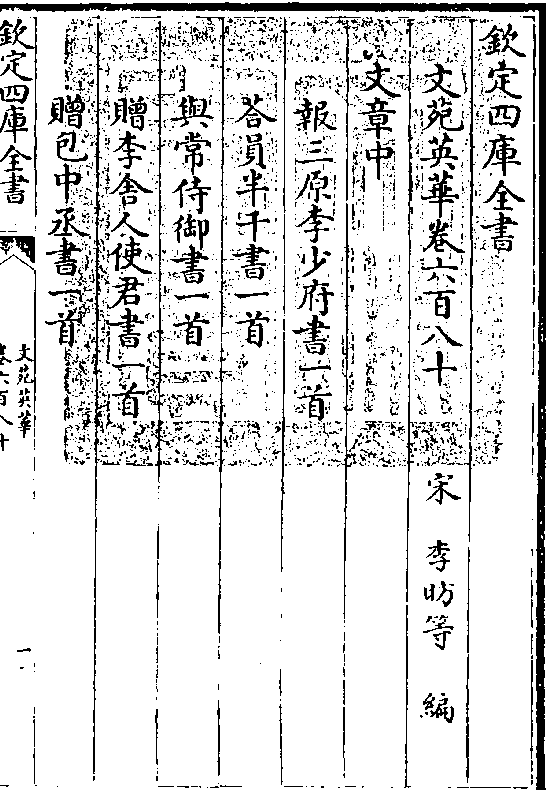 欽定四庫全書
文苑英華卷六百八十
宋 李昉等 編
文章中
報三原李少府書一首
荅員半千書一首
與常侍御書一首
贈李舍人使君書一首
贈包中丞書一首
欽定四庫全書
文苑英華
卷六百八十
一